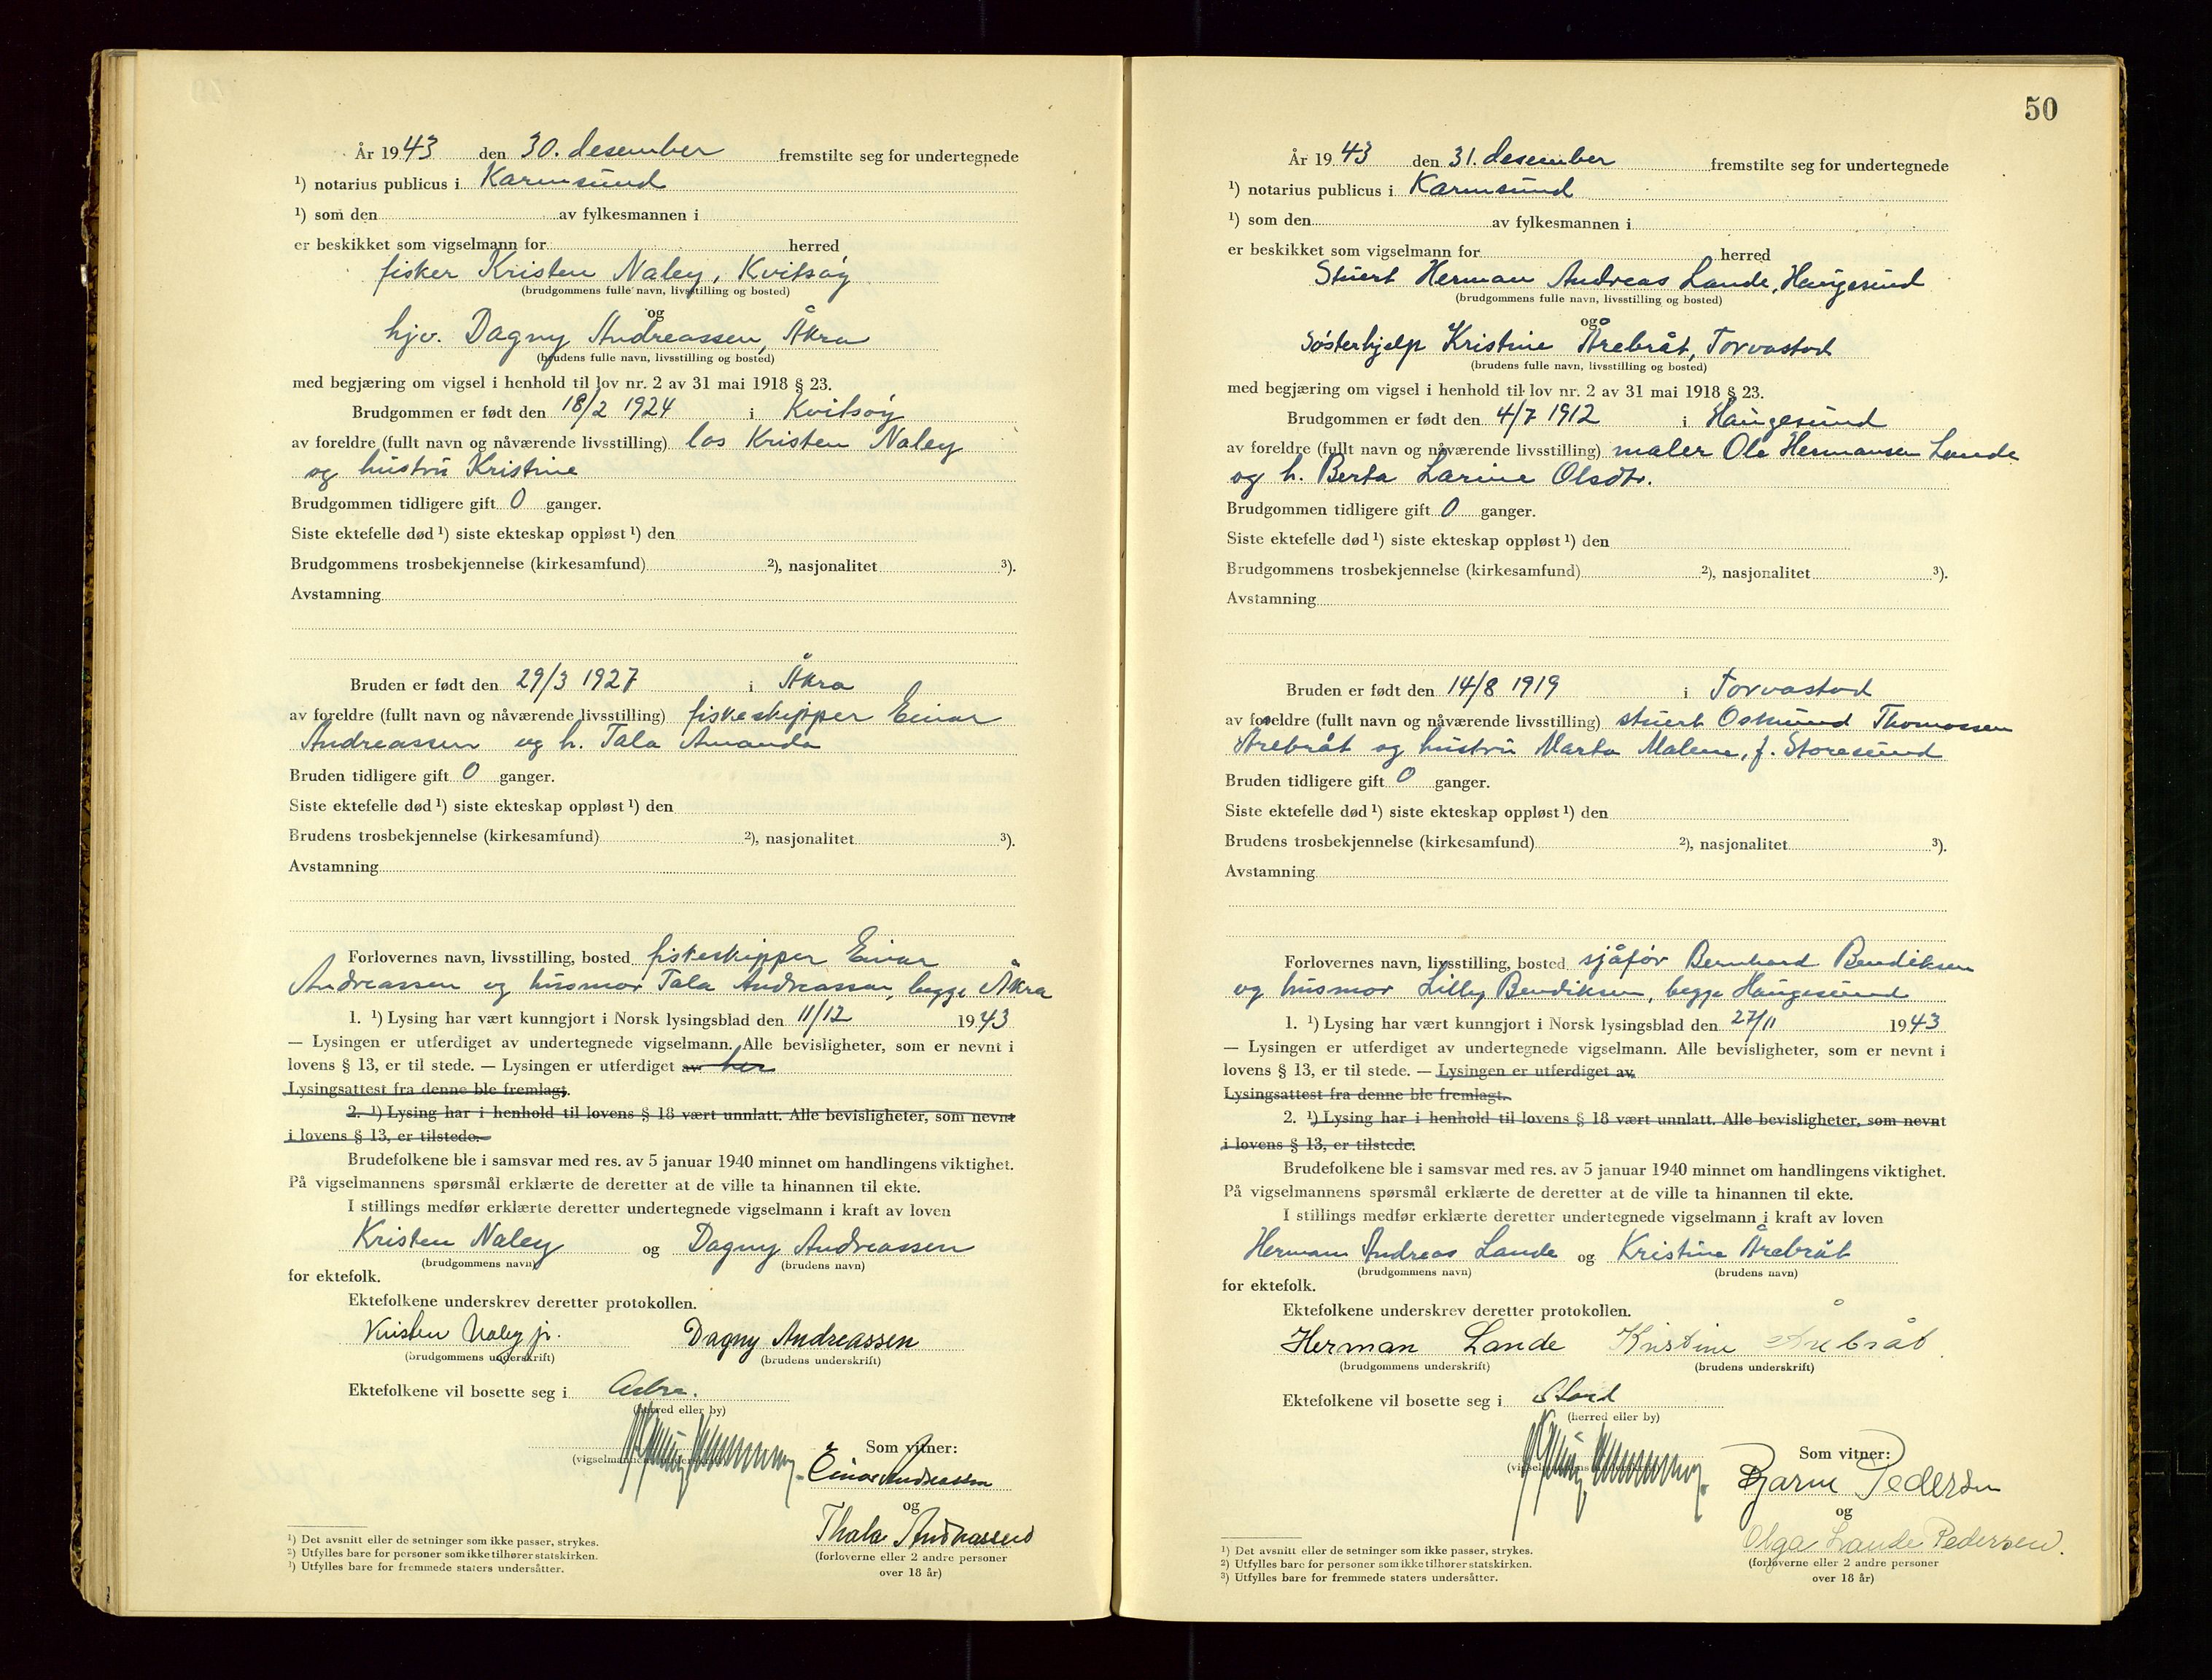 År 1943 den 30. desember fremstilte seg for undertegnede
¹) notarius publicus i Karmsund
¹) som den av fylkesmannen i
er beskikket som vigselmann for herred
fisker Kristen Naley, Kvitsøy
(brudgommens fulle navn, livsstilling og bosted)
og
hjv. Dagny Andreassen, Åkra
(brudens fulle navn, livsstilling og bosted)
med begjæring om vigsel i henhold til lov nr. 2 av 31 mai 1918 § 23.
Brudgommen er født den 18/2 1924 i Kvitsøy
av foreldre (fullt navn og nåværende livsstilling) los Kristen Naley
og hustru Kristine
Brudgommen tidligere gift 0 ganger.
Siste ektefelle død ¹) siste ekteskap oppløst ¹) den
Brudgommens trosbekjennelse (kirkesamfund) ²), nasjonalitet ³).
Avstamning
Bruden er født den 29/3 1927 i Åkra
av foreldre (fullt navn og nåværende livsstilling) fiskeskipper Einar
Andreassen og h. Tala Amanda
Bruden tidligere gift 0 ganger.
Siste ektefelle død ¹) siste ekteskap oppløst ¹) den
Brudens trosbekjennelse (kirkesamfund) ²), nasjonalitet ³).
Avstamning
Forlovernes navn, livsstilling, bosted fiskeskipper Einar
Andreassen og husmor Tala Andreassen, begge Åkra
1. ¹) Lysing har vært kunngjort i Norsk lysingsblad den 11/12 1943
— Lysingen er utferdiget av undertegnede vigselmann. Alle bevisligheter, som er nevnt i
lovens § 13, er til stede. — Lysingen er utferdiget av her
Lysingsattest fra denne ble fremlagt.
2. ¹) Lysing har i henhold til lovens § 18 vært unnlatt. Alle bevisligheter, som nevnt
i lovens § 13, er tilstede.
Brudefolkene ble i samsvar med res. av 5 januar 1940 minnet om handlingens viktighet.
På vigselmannens spørsmål erklærte de deretter at de ville ta hinannen til ekte.
I stillings medfør erklærte deretter undertegnede vigselmann i kraft av loven
Kristen Naley og Dagny Andreassen
(brudgommens navn) (brudens navn)
for ektefolk.
Ektefolkene underskrev deretter protokollen.
Kristen Naley jr. Dagny Andreassen
(brudgommens underskrift) (brudens underskrift)
Ektefolkene vil bosette seg i Åkra.
(herred eller by)
Som vitner:
(vigselmannens underskrift)
Einar Andreassen
og
Thala Andreassen
(forloverne eller 2 andre personer
over 18 år)
¹) Det avsnitt eller de setninger som ikke passer, strykes.
²) Utfylles bare for personer som ikke tilhører statskirken.
³) Utfylles bare for fremmede staters undersåtter.
50
År 1943 den 31. desember fremstilte seg for undertegnede
¹) notarius publicus i Karmsund
¹) som den av fylkesmannen i
er beskikket som vigselmann for herred
Stuert Herman Andreas Lande, Haugesund
(brudgommens fulle navn, livsstilling og bosted)
og
Søsterhjelp Kristine Årebråt, Torvastad
(brudens fulle navn, livsstilling og bosted)
med begjæring om vigsel i henhold til lov nr. 2 av 31 mai 1918 § 23.
Brudgommen er født den 4/7 1912 i Haugesund
av foreldre (fullt navn og nåværende livsstilling) maler Ole Hermansen Lande
og h. Berta Larine Olsdtr.
Brudgommen tidligere gift 0 ganger.
Siste ektefelle død ¹) siste ekteskap oppløst ¹) den
Brudgommens trosbekjennelse (kirkesamfund) ²), nasjonalitet ³).
Avstamning
Bruden er født den 14/8 1919 i Torvastad
av foreldre (fullt navn og nåværende livsstilling) stuert Osmund Thomassen
Årebråt og hustru Marta Malene, f. Storesund
Bruden tidligere gift 0 ganger.
Siste ektefelle død ¹) siste ekteskap oppløst ¹) den
Brudens trosbekjennelse (kirkesamfund) ²), nasjonalitet ³).
Avstamning
Forlovernes navn, livsstilling, bosted sjåfør Bernhard Bendiksen
og husmor Lilly Bendiksen, begge Haugesund
1. ¹) Lysing har vært kunngjort i Norsk lysingsblad den 27/11 1943
— Lysingen er utferdiget av undertegnede vigselmann. Alle bevisligheter, som er nevnt i
lovens § 13, er til stede. — Lysingen er utferdiget av
Lysingsattest fra denne ble fremlagt.
2. ¹) Lysing har i henhold til lovens § 18 vært unnlatt. Alle bevisligheter, som nevnt
i lovens § 13, er tilstede.
Brudefolkene ble i samsvar med res. av 5 januar 1940 minnet om handlingens viktighet.
På vigselmannens spørsmål erklærte de deretter at de ville ta hinannen til ekte.
I stillings medfør erklærte deretter undertegnede vigselmann i kraft av loven
Herman Andreas Lande og Kristine Årebråt
(brudgommens navn) (brudens navn)
for ektefolk.
Ektefolkene underskrev deretter protokollen.
Herman Lande Kristine Årebråt
(brudgommens underskrift) (brudens underskrift)
Ektefolkene vil bosette seg i Stord
(herred eller by)
Som vitner:
(vigselmannens underskrift)
Bjarne Pedersen
og
Olga Lande Pedersen.
(forloverne eller 2 andre personer
over 18 år)
¹) Det avsnitt eller de setninger som ikke passer, strykes.
²) Utfylles bare for personer som ikke tilhører statskirken.
³) Utfylles bare for fremmede staters undersåtter.